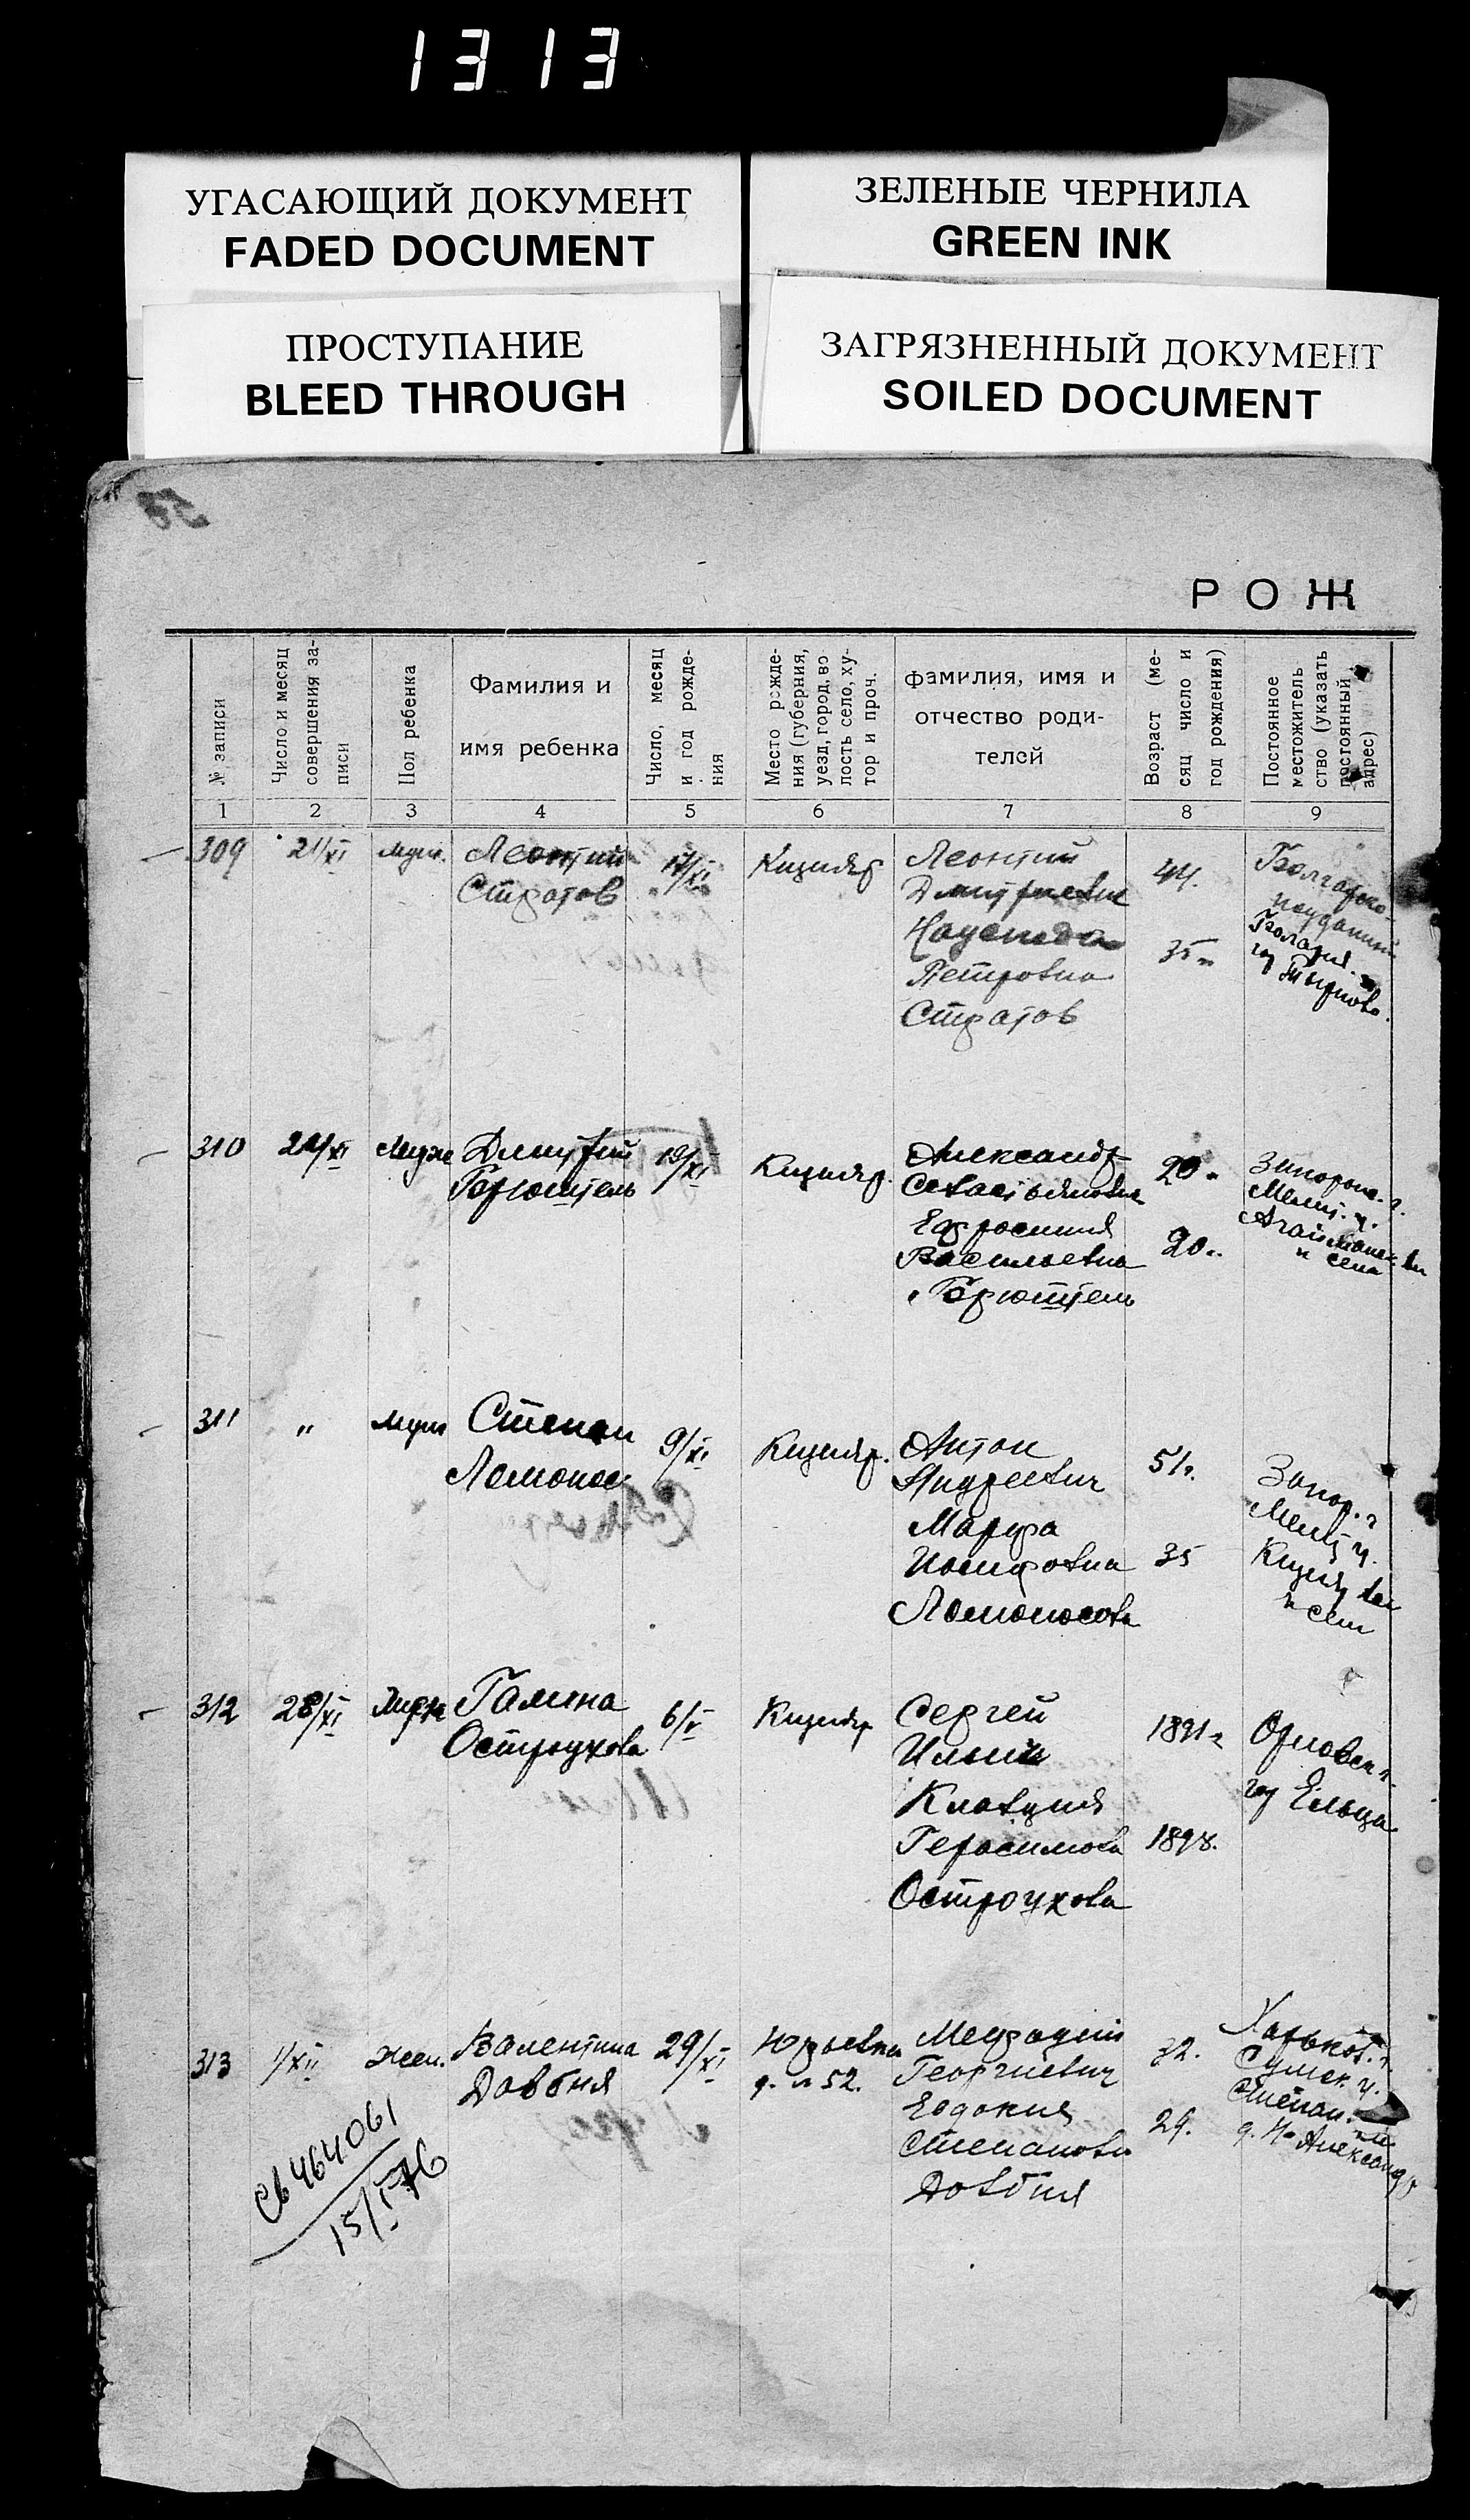 1313
УГАСАЮЩИЙ ДОКУМЕНТ
FADED DOCUMENT
ЗЕЛЕНЫЕ ЧЕРНИЛА
GREEN INK
ПРОСТУПАНИЕ
BLEED THROUGH
ЗАГРЯЗНЕННЫЙ ДОКУМЕНТ
SOILED DOCUMENT
РОЖ
№ записи
Число и месяц
совершения за-
писи
Пол ребенка
Фамилия и
имя ребенка
Число, месяц
и год рожде-
ния
Место рожде-
ния (губерния,
уезд, город, во
лость село, ху-
тор и проч.
фамилия, имя и
отчество роди-
телей
Возраст (ме-
сяц число и
год рождения)
Постоянное
местожитель
ство (указать
постоянный
адрес)
1 2 3 4 5 6 7 8 9
309
21/XI
муж.
Леонтий
Стратов
17/XI
Кизияр
Леонтий
Дмитриевич
Петровна
Стратов
44.
35
Болгарско-
Болгария.
310
Муж
Дмитрий
19/XI
Кизияр.
Александр
Севастьянович
Ефросиния
Васильевна
20
20
Запорож. г.
Мелит. у.
и села
311
"
муж
Степан
Ломонос
9/XI
Кизияр.
Антон
Андреевич
Марфа
Иосифовна
Ломоносова
51г.
35
Запор. г
Мелит у.
Кизияр вол
и села
312
28/XI
Галина
Остроухова
6/V
Кизияр
Сергей
Ильич
Клавдия
Герасимова
Остроухова
1891г
1898.
Орловск г.
гор Ельца
313
1/XII
жен.
Валентина
Довбня
29/XI
Юрьевка
д. № 52.
Мефодий
Георгиевич
Евдокия
Степановна
Довбня
32.
29.
Харьков. г.
Сумск. у.
Степан.
464061
15/I 76